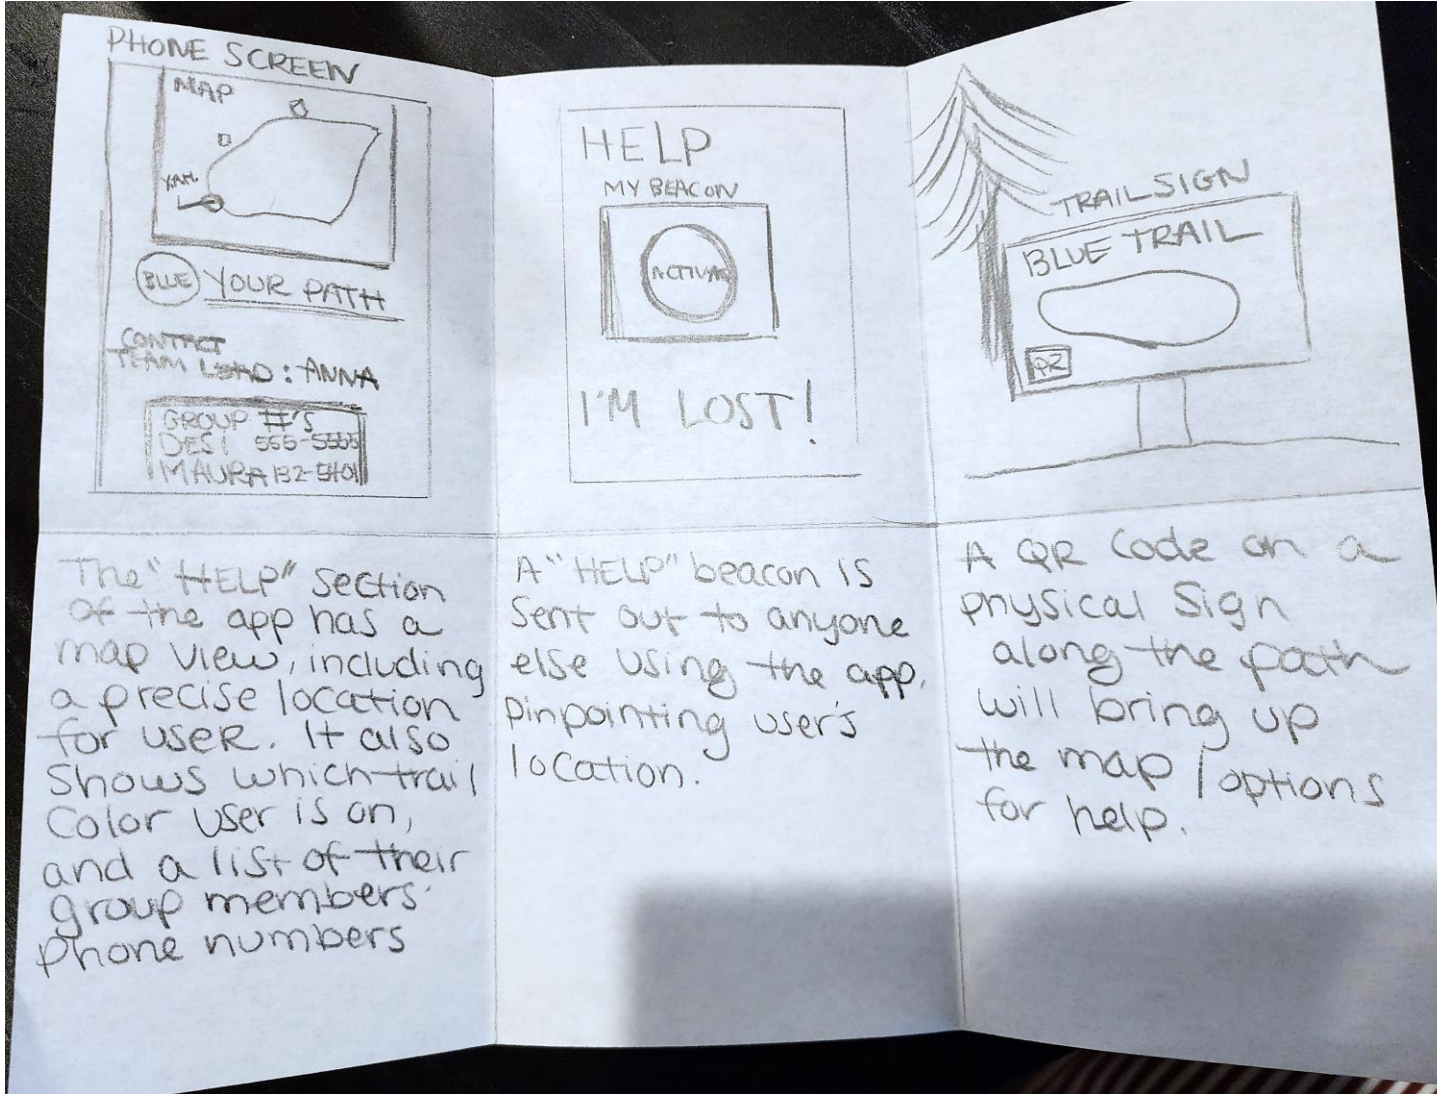 PHONE SCREEN
MAP
Y.A.H.
BLUE YOUR PATH
CONTACT
TEAM LEAD: ANNA
GROUP #'S
DESI 555-5555
MAURA 132-5401
The "HELP" section
of the app has a
map view, including
a precise location
for user. It also
shows which trail
color user is on,
and a list of their
group members'
phone numbers
HELP
MY BEACON
ACTIVATE
I'M LOST!
A "HELP" beacon is
sent out to anyone
else using the app,
pinpointing user's
location.
TRAIL SIGN
BLUE TRAIL
QR
A QR code on a
physical sign
along the path
will bring up
the map / options
for help.